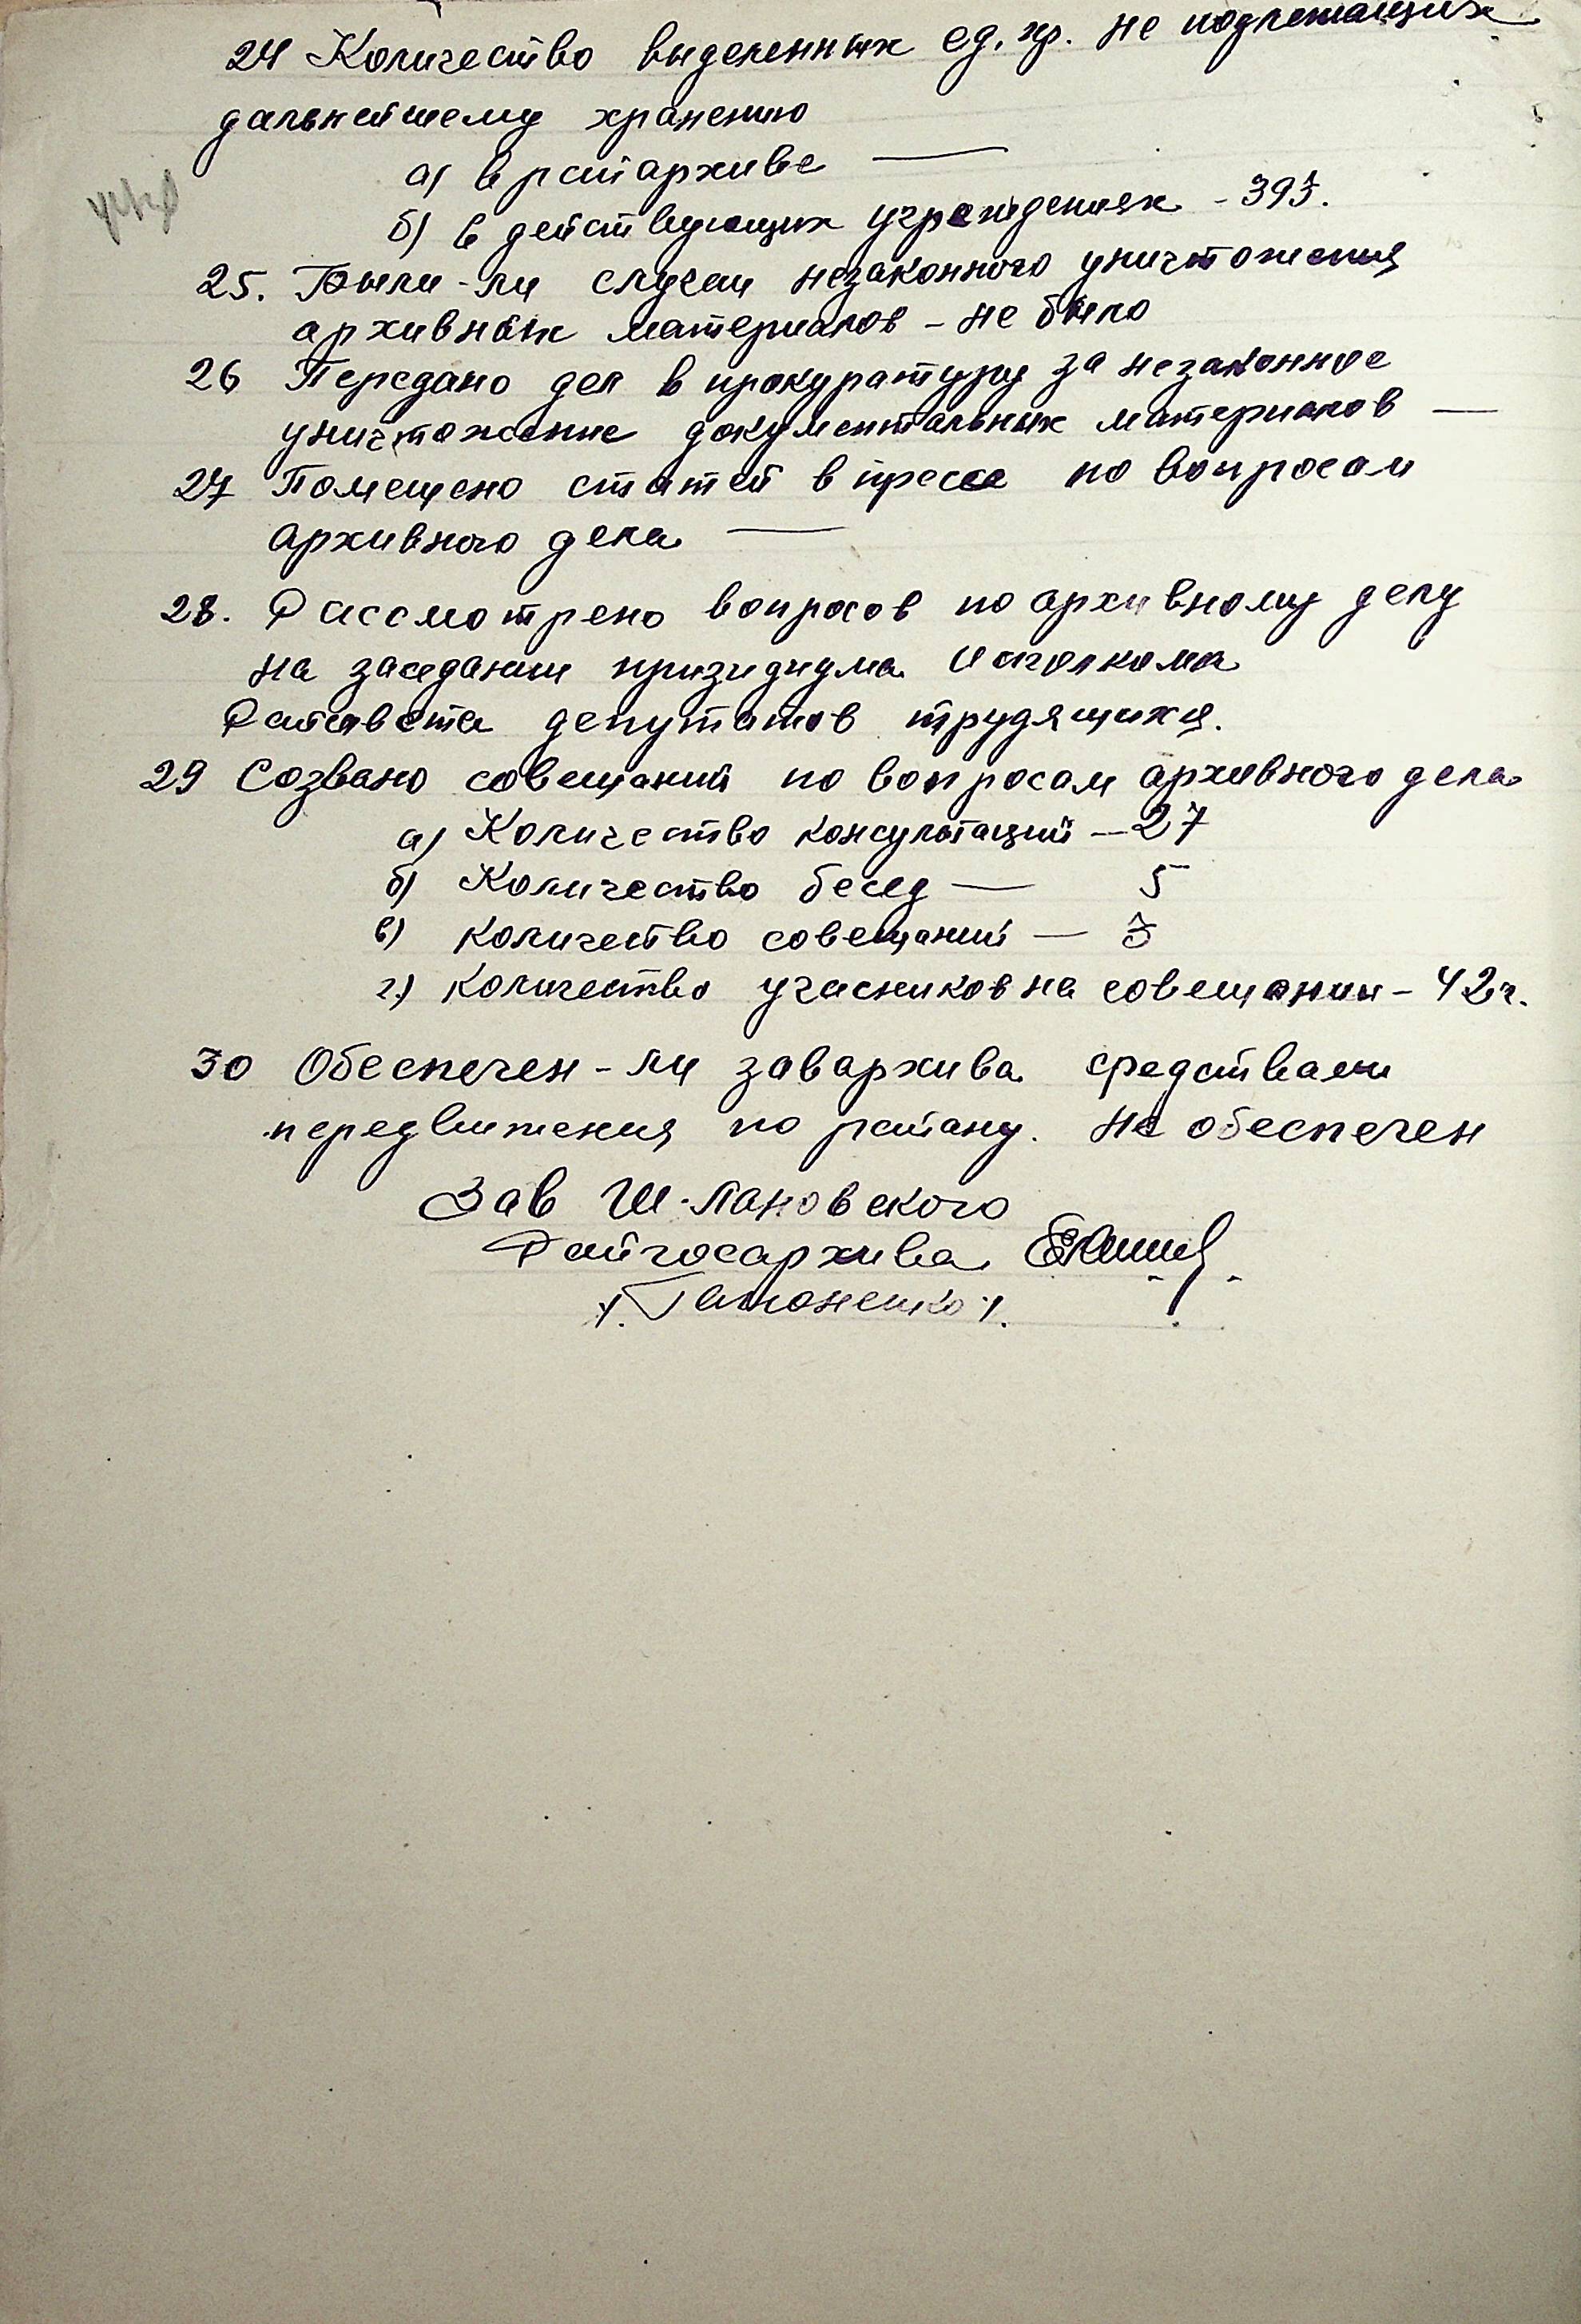 24 Количество выделенных ед. хр. не подлежащих
дальнейшему хранению
а) в райархиве —
б) в действующих учреждениях - 393.
25. Были-ли случаи незаконного уничтожения
архивных материалов - не было
26 Передано дел в прокуратуру за незаконное
уничтожение документальных материалов —
27 Помещено статей в прессе по вопросам
архивного дела —
28. Рассмотрено вопросов по архивному делу
на заседании призидиума Исполкома
Райсовета депутатов трудящихся.
29 Созвано совещаний по вопросам архивного дела
а) Количество консультаций - 27
б) Количество бесед — 5
в) количество совещаний — 3
г.) количество учасников на совещании - 42 ч.
30 Обеспечен-ли заварxива средствами
передвижения по району. Не обеспечен
Зав Ш-Лановского
Райгосархива